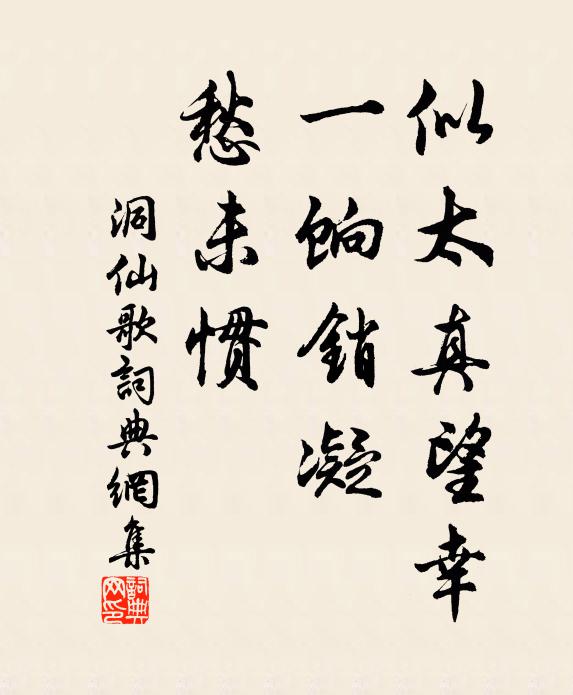 似太真望幸
一餉銷凝
愁未慣
洞仙歌詞典網集
詞典網印